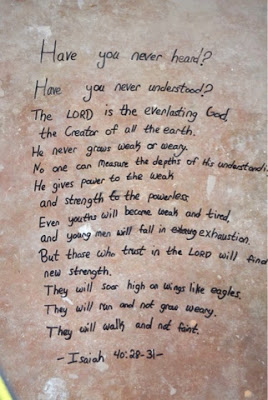 Have you never heard?
Have you never understood?
The LORD is the everlasting God
the Creator of all the earth.
He never grows weak or weary.
No one can measure the depths of His understandi
He gives power to the weak
and strength to the powerless
Even youths will become weak and tired,
and young men will fall in exhaustion.
But those who trust in the LORD will find
new strength.
They will soar high on wings like eagles.
They will run and not grow weary.
They will walk and not faint.
- Isaiah 40:28-31-